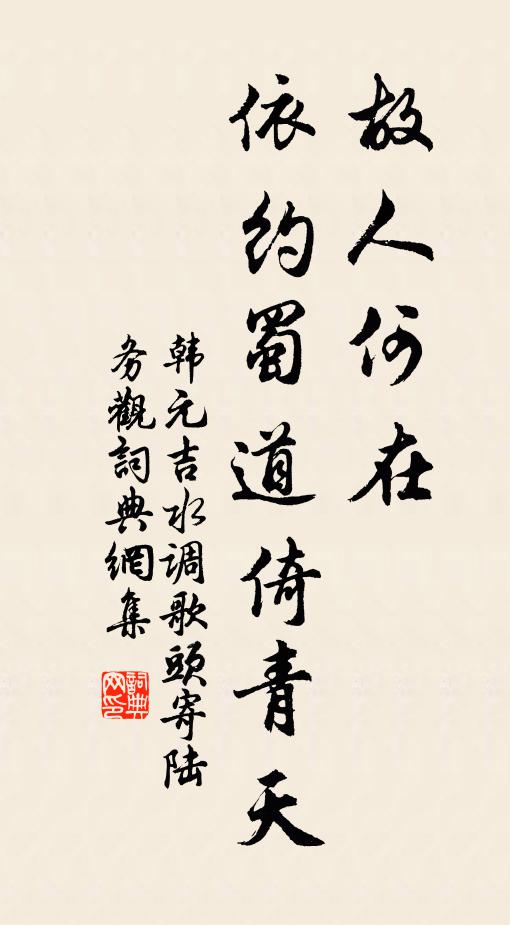 故人何在
依约蜀道倚青天
韩元吉水调歌头寄陆
务觀詞典網集
詞典网印